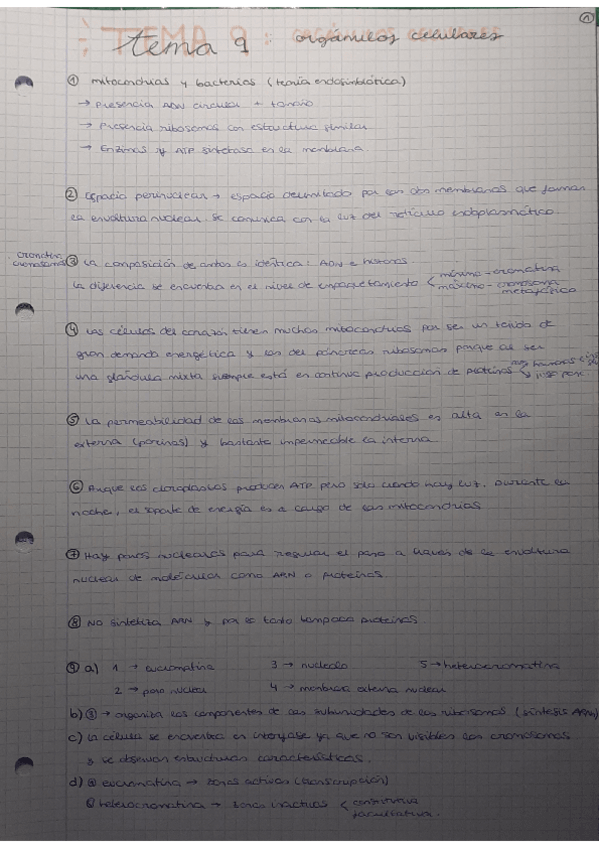 ①
tema 9 : orgánulos celulares
① mitocondrias y bacterias (teoría endosimbiótica)
→ Presencia ADN circular + tamaño
→ Presencia ribosomas con estructura similar
→ Enzimas y ATP sintetasa en la membrana.
② Espacio perinuclear → espacio delimitado por las dos membranas que forman
la envoltura nuclear. Se comunica con la luz del retículo endoplasmático.
cromatina
cromosomas ③ La composición de ambos es idéntica: ADN e histonas.
La diferencia se encuentra en el nivel de empaquetamiento < mínimo - cromatina
máximo - cromosoma
metafásico
④ Las células del corazón tienen muchas mitocondrias por ser un tejido de
gran demanda energética y las del páncreas ribosomas porque al ser
una glándula mixta siempre está en continua producción de proteínas
⑤ La permeabilidad de las membranas mitocondriales es alta en la
externa (porinas) y bastante impermeable la interna.
⑥ Aunque los cloroplastos producen ATP pero solo cuando hay luz. Durante la
noche, el soporte de energía es a cargo de las mitocondrias.
⑦ Hay poros nucleares para regular el paso a través de la envoltura
nuclear de moléculas como ARN o proteínas.
⑧ No sintetiza ARN y por lo tanto tampoco proteínas.
⑨ a) 1 → eucromatina 3 → nucleolo 5 → heterocromatina
2 → poro nuclear 4 → membrana externa nuclear
b) ③ → organiza los componentes de las subunidades de los ribosomas (síntesis ARNr)
c) La célula se encuentra en interfase ya que no son visibles los cromosomas
y se observan estructuras características.
d) eucromatina → zonas activas (transcripción)
heterocromatina → zonas inactivas < constitutiva
facultativa.